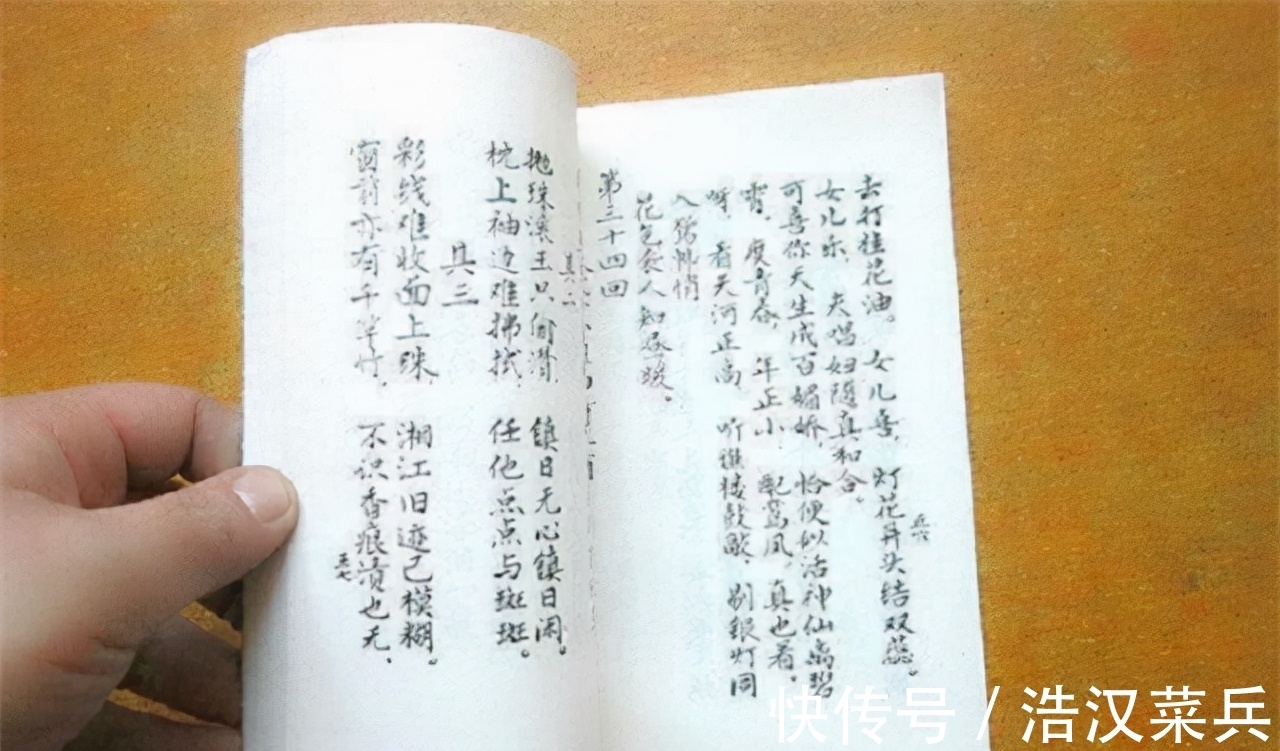 去打桂花油。女儿喜，灯花并头结双蕊。
五六
女儿乐，夫唱妇随真和合。
可喜你天生成百媚娇，恰便似活神仙离碧
霄。度青春，年正小，配鸾凤，真也着。
呀，看天河正高，听谯楼鼓敲，剔银灯同
入鸳帏悄
花气袭人知昼暖。
第三十四回
其二
抛珠滚玉只偷潸，镇日无心镇日闲。
枕上袖边难拂拭，任他点点与斑斑。
其三
彩线难收面上珠，湘江旧迹已模糊。
窗前亦有千竿竹，不识香痕渍也无、
五七
快传号 / 浩汉菜兵